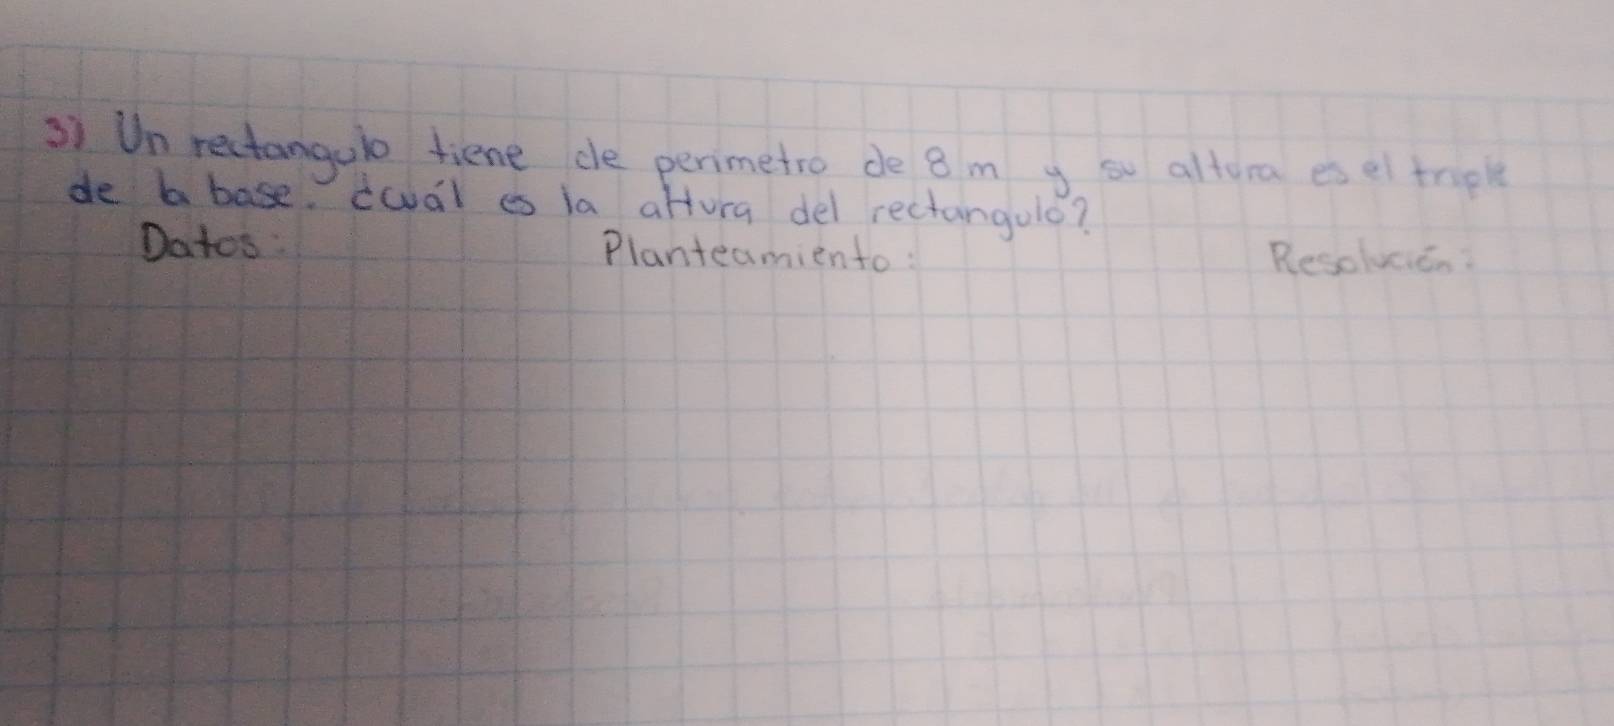 3) Un rectangulo tiene de perimetro de 8 m y su altura es el triple
de la base. ¿cuál es la altura del rectangulo?
Datos: Planteamiento: Resolución: